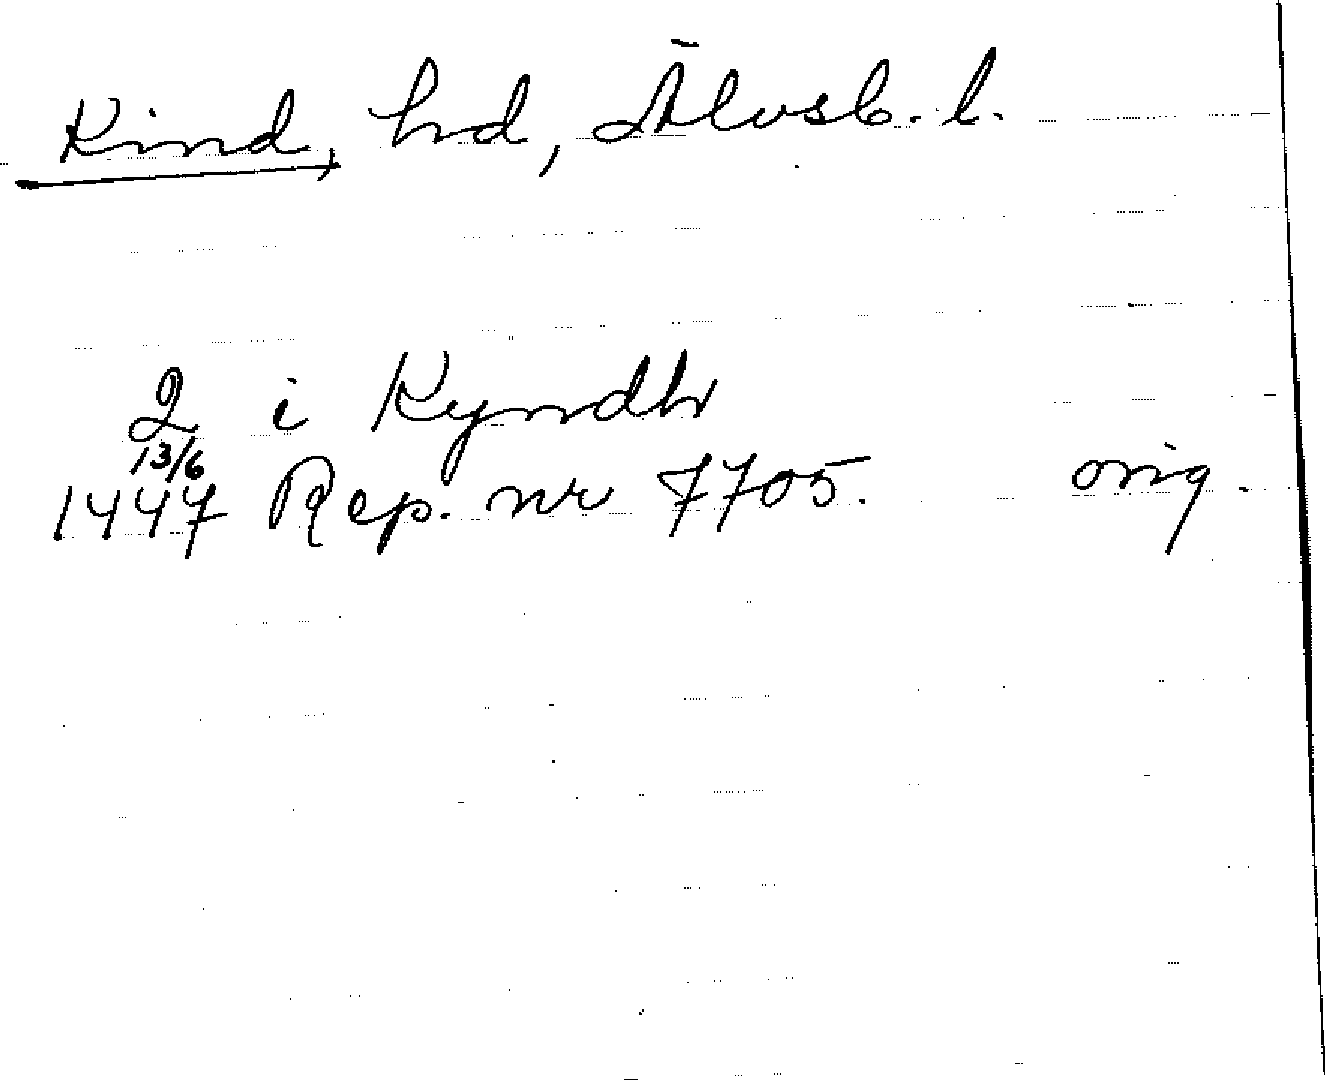 Kind, hd, Älvsb. l.
2 i Kyndh
13/6
1447 Rep. nr 7705. orig.